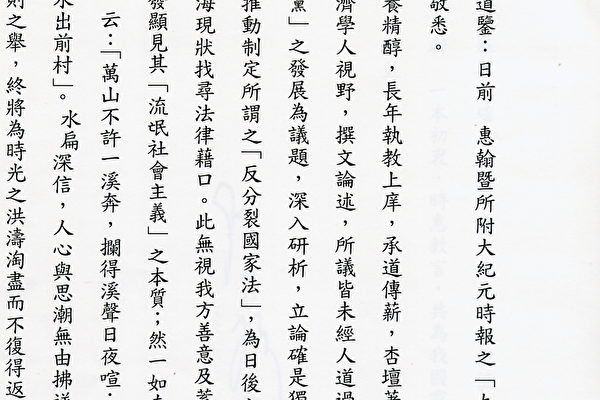 道鑒：日前　惠翰暨所附大紀元時報之「
敬悉。
養精醇，長年執教上庠，承道傳薪，杏壇著
濟學人視野，撰文論述，所議皆未經人道過
黨」之發展為議題，深入研析，立論確是獨
推動制定所謂之「反分裂國家法」，為日後
海現狀找尋法律藉口。此無視我方善意及蓄
發顯見其「流氓社會主義」之本質；然一如
云：「萬山不許一溪奔，攔得溪聲日夜喧：
水出前村」。水扁深信，人心與思潮無由拂逆
則之舉，終將為時光之洪濤淘盡而不復得返